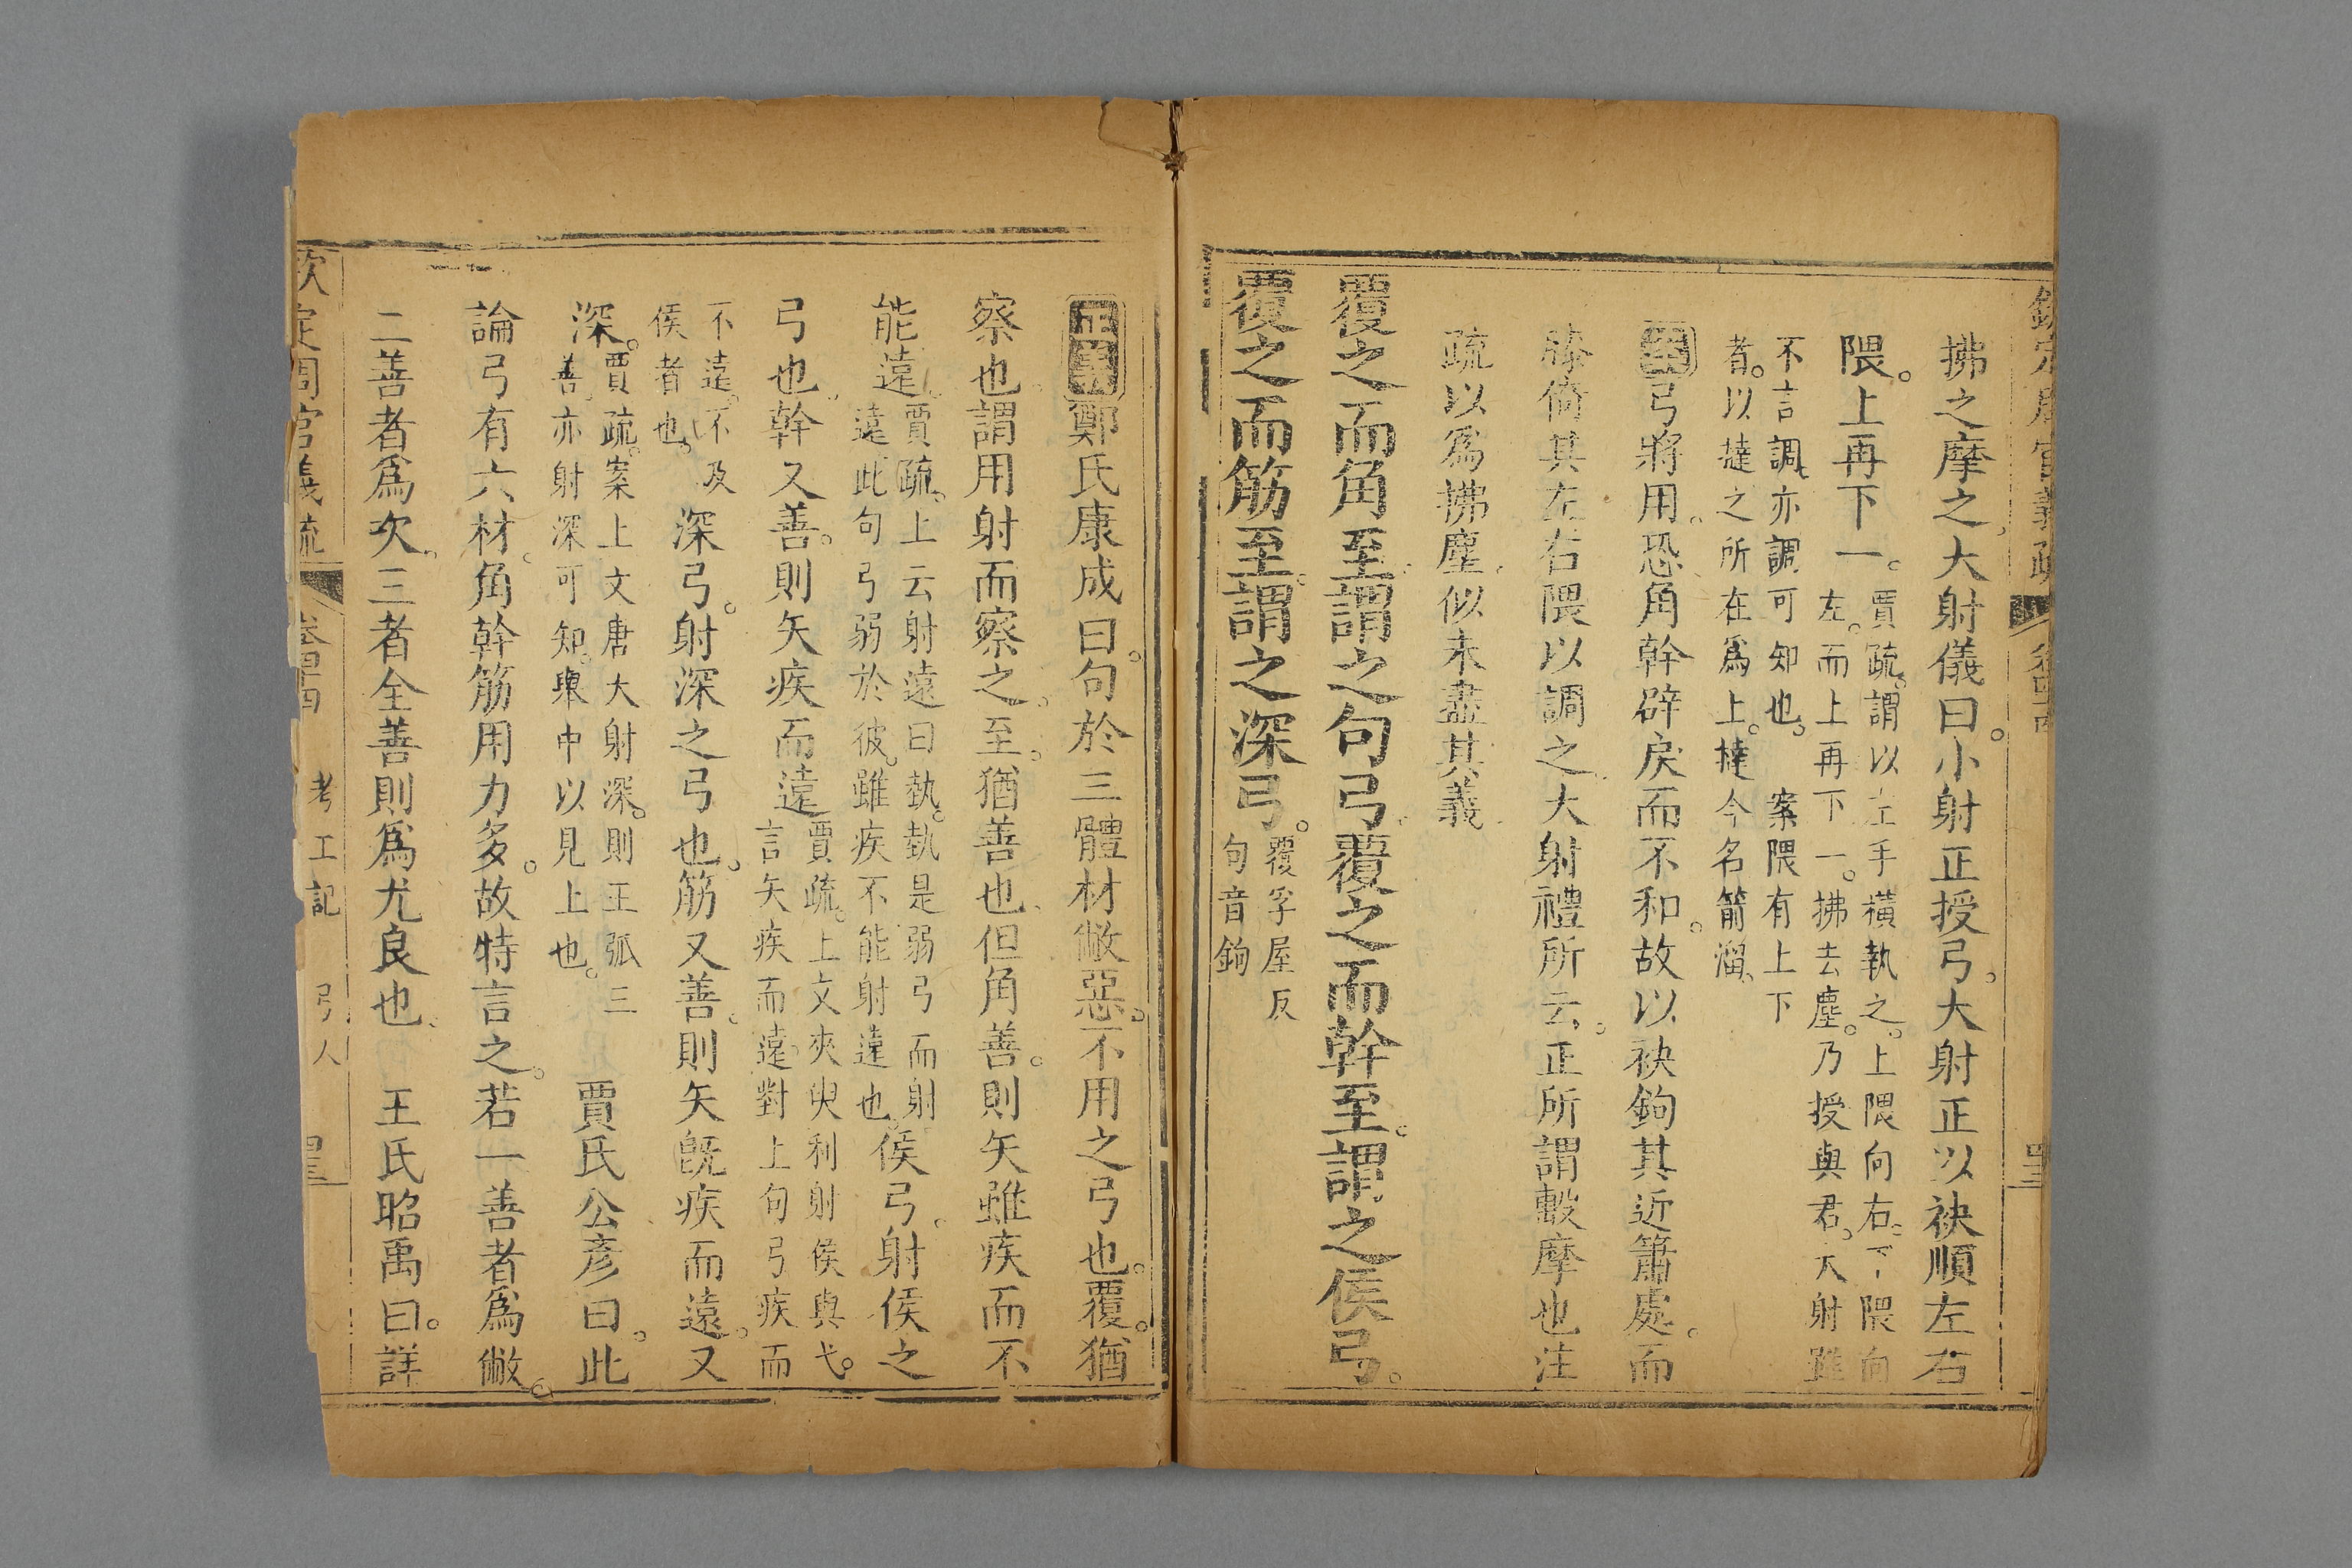 欽定周官義疏
拂之摩之大射儀曰。小射正授弓。大射正以袂順左右
隈。上再下一。
賈疏。謂以左手橫執之。上隈向右。下隈向
左。而上再下一。拂去塵。乃授與君。大射雖
不言調。亦調可知也。 案隈有上下
者。以撻之所在爲上。撻今名箭溜。
弓將用。恐角幹辟戾而不和。故以袂鉤其近簫處。而
膝倚其左右隈以調之。大射禮所云。正所謂㲉摩也注
疏以爲拂塵。似未盡其義
覆之而角至。謂之句弓。覆之而幹至。謂之侯弓。
覆之而筋至。謂之深弓。
覆孚屋反
句音鉤
正義鄭氏康成曰。句於三體材敝惡。不用之弓也。覆。猶
察也。謂用射而察之。至。猶善也。但角善。則矢雖疾而不
能遠。
賈疏。上云射遠曰埶。埶是弱弓而射
遠。此句弓弱於彼。雖疾不能射遠也。
侯弓。射侯之
弓也。幹又善。則矢疾而遠
賈疏。上文夾臾利射侯與弋。
言矢疾而遠。對上句弓疾而
不遠。不及
侯者也。
深弓。射深之弓也。筋又善。則矢旣疾而遠。又
深。
賈疏。案上文唐大射深。則王弧三
善。亦射深可知。舉中以見上也。
賈氏公彥曰。此
論弓有六材。角幹筋用力多。故特言之。若一善者爲敝。
二善者爲次。三者全善則爲尤良也。 王氏昭禹曰。詳
欽定周官義疏 卷四十四 考工記 弓人